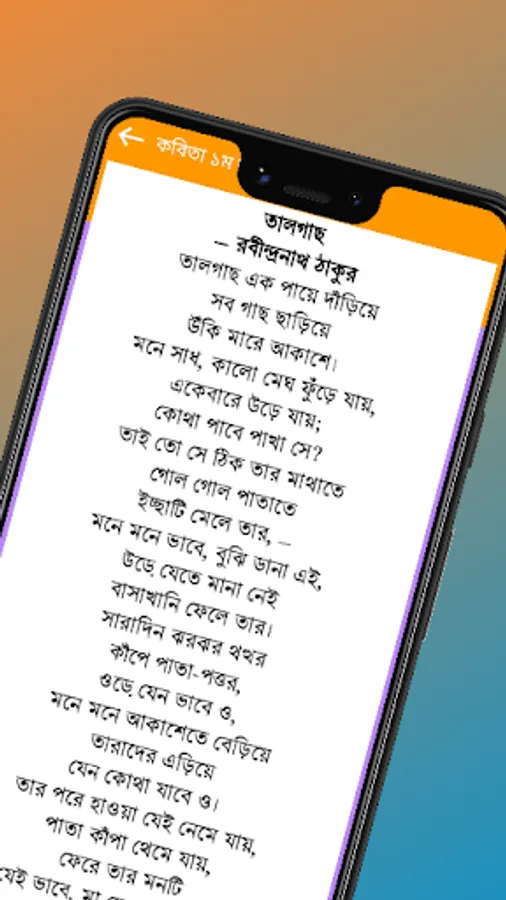 কবিতা ১ম
তালগাছ
– রবীন্দ্রনাথ ঠাকুর
তালগাছ এক পায়ে দাঁড়িয়ে
সব গাছ ছাড়িয়ে
উঁকি মারে আকাশে।
মনে সাধ, কালো মেঘ ফুঁড়ে যায়,
একেবারে উড়ে যায়;
কোথা পাবে পাখা সে?
তাই তো সে ঠিক তার মাথাতে
গোল গোল পাতাতে
ইচ্ছাটি মেলে তার, –
মনে মনে ভাবে, বুঝি ডানা এই,
উড়ে যেতে মানা নেই
বাসাখানি ফেলে তার।
সারাদিন ঝরঝর থত্থর
কাঁপে পাতা-পত্তর,
ওড়ে যেন ভাবে ও,
মনে মনে আকাশেতে বেড়িয়ে
তারাদের এড়িয়ে
যেন কোথা যাবে ও।
তার পরে হাওয়া যেই নেমে যায়,
পাতা কাঁপা থেমে যায়,
ফেরে তার মনটি
যেই ভাবে, মা